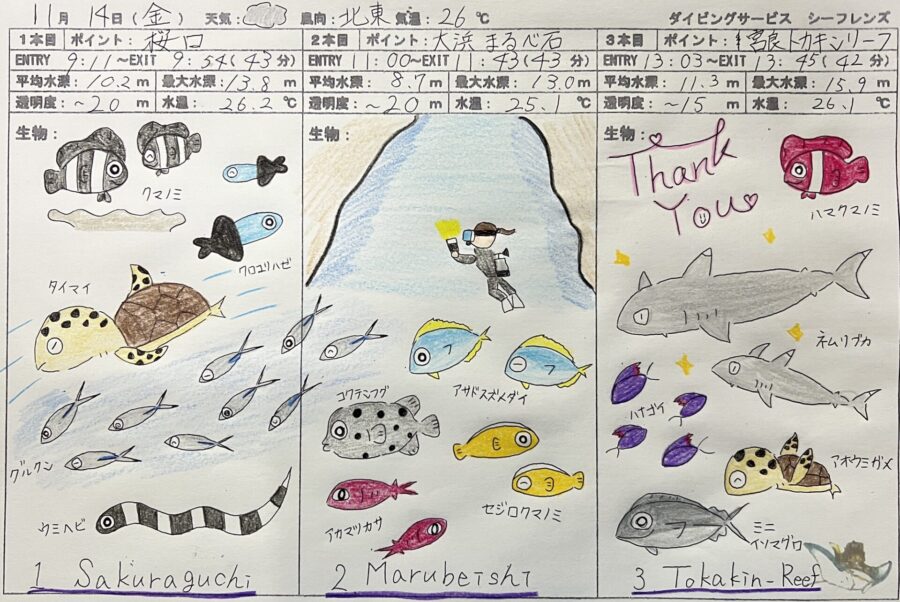 11月 14日(金) 天気: 風向:北東 気温:26℃ ダイビングサービス シーフレンズ
1本目 ポイント: 桜口
ENTRY 9:11〜EXIT 9:54(43分)
平均水深: 10.2m 最大水深: 13.8m
透明度: ~20m 水温: 26.2℃
生物:
クマノミ
クロユリハゼ
タイマイ
グルクン
ウミヘビ
1 Sakuraguchi
2本目 ポイント: 大浜 まるべ石
ENTRY 11:00〜EXIT 11:43(43分)
平均水深: 8.7m 最大水深: 13.0m
透明度: ~20m 水温: 25.1℃
生物:
アサドスズメダイ
コクテンフグ
セジロクマノミ
アカマツカサ
2 Marubeishi
3本目 ポイント: 宮良トカキンリーフ
ENTRY 13:03〜EXIT 13:45(42分)
平均水深: 11.3m 最大水深: 15.9m
透明度: ~15m 水温: 26.1℃
生物:
Thank
You
ハマクマノミ
ネムリブカ
ハナゴイ
アオウミガメ
ミニ
イソマグロ
3 Tokakin-Reef